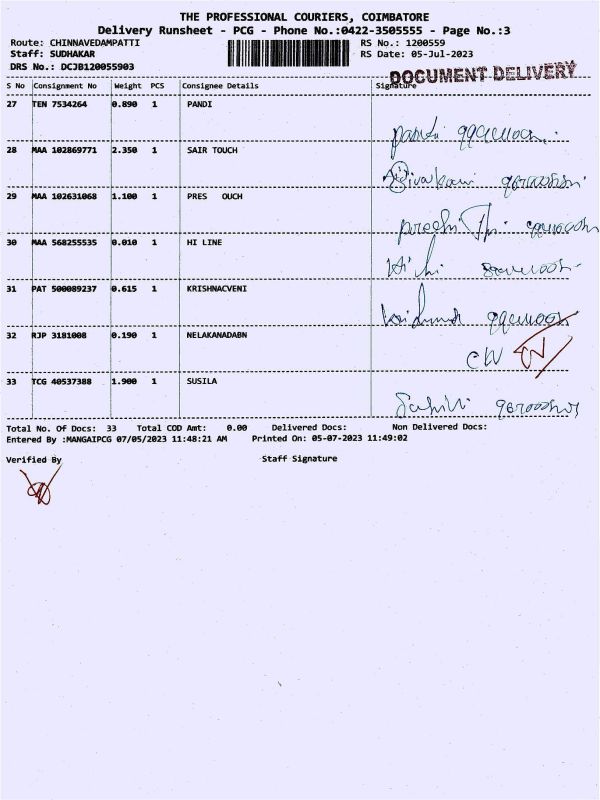 THE PROFESSIONAL COURIERS, COIMBATORE
Delivery Runsheet - PCG - Phone No.:0422-3505555 - Page No.:3
Route: CHINNAVEDAMPATTI RS No.: 1200559
Staff: SUDHAKAR RS Date: 05-Jul-2023
DRS No.: DCJB120055903
DOCUMENT DELIVERY
S No Consignment No Weight PCS Consignee Details Signature
27 TEN 7534264 0.890 1 PANDI
28 MAA 102869771 2.350 1 SAIR TOUCH
29 MAA 102631068 1.100 1 PRES OUCH
30 MAA 568255535 0.010 1 HI LINE
31 PAT 500089237 0.615 1 KRISHNACVENI
32 RJP 3181008 0.190 1 NELAKANADABN
CW
33 TCG 40537388 1.900 1 SUSILA
Total No. Of Docs: 33 Total COD Amt: 0.00 Delivered Docs: Non Delivered Docs:
Entered By :MANGAIPCG 07/05/2023 11:48:21 AM Printed On: 05-07-2023 11:49:02
Verified By Staff Signature